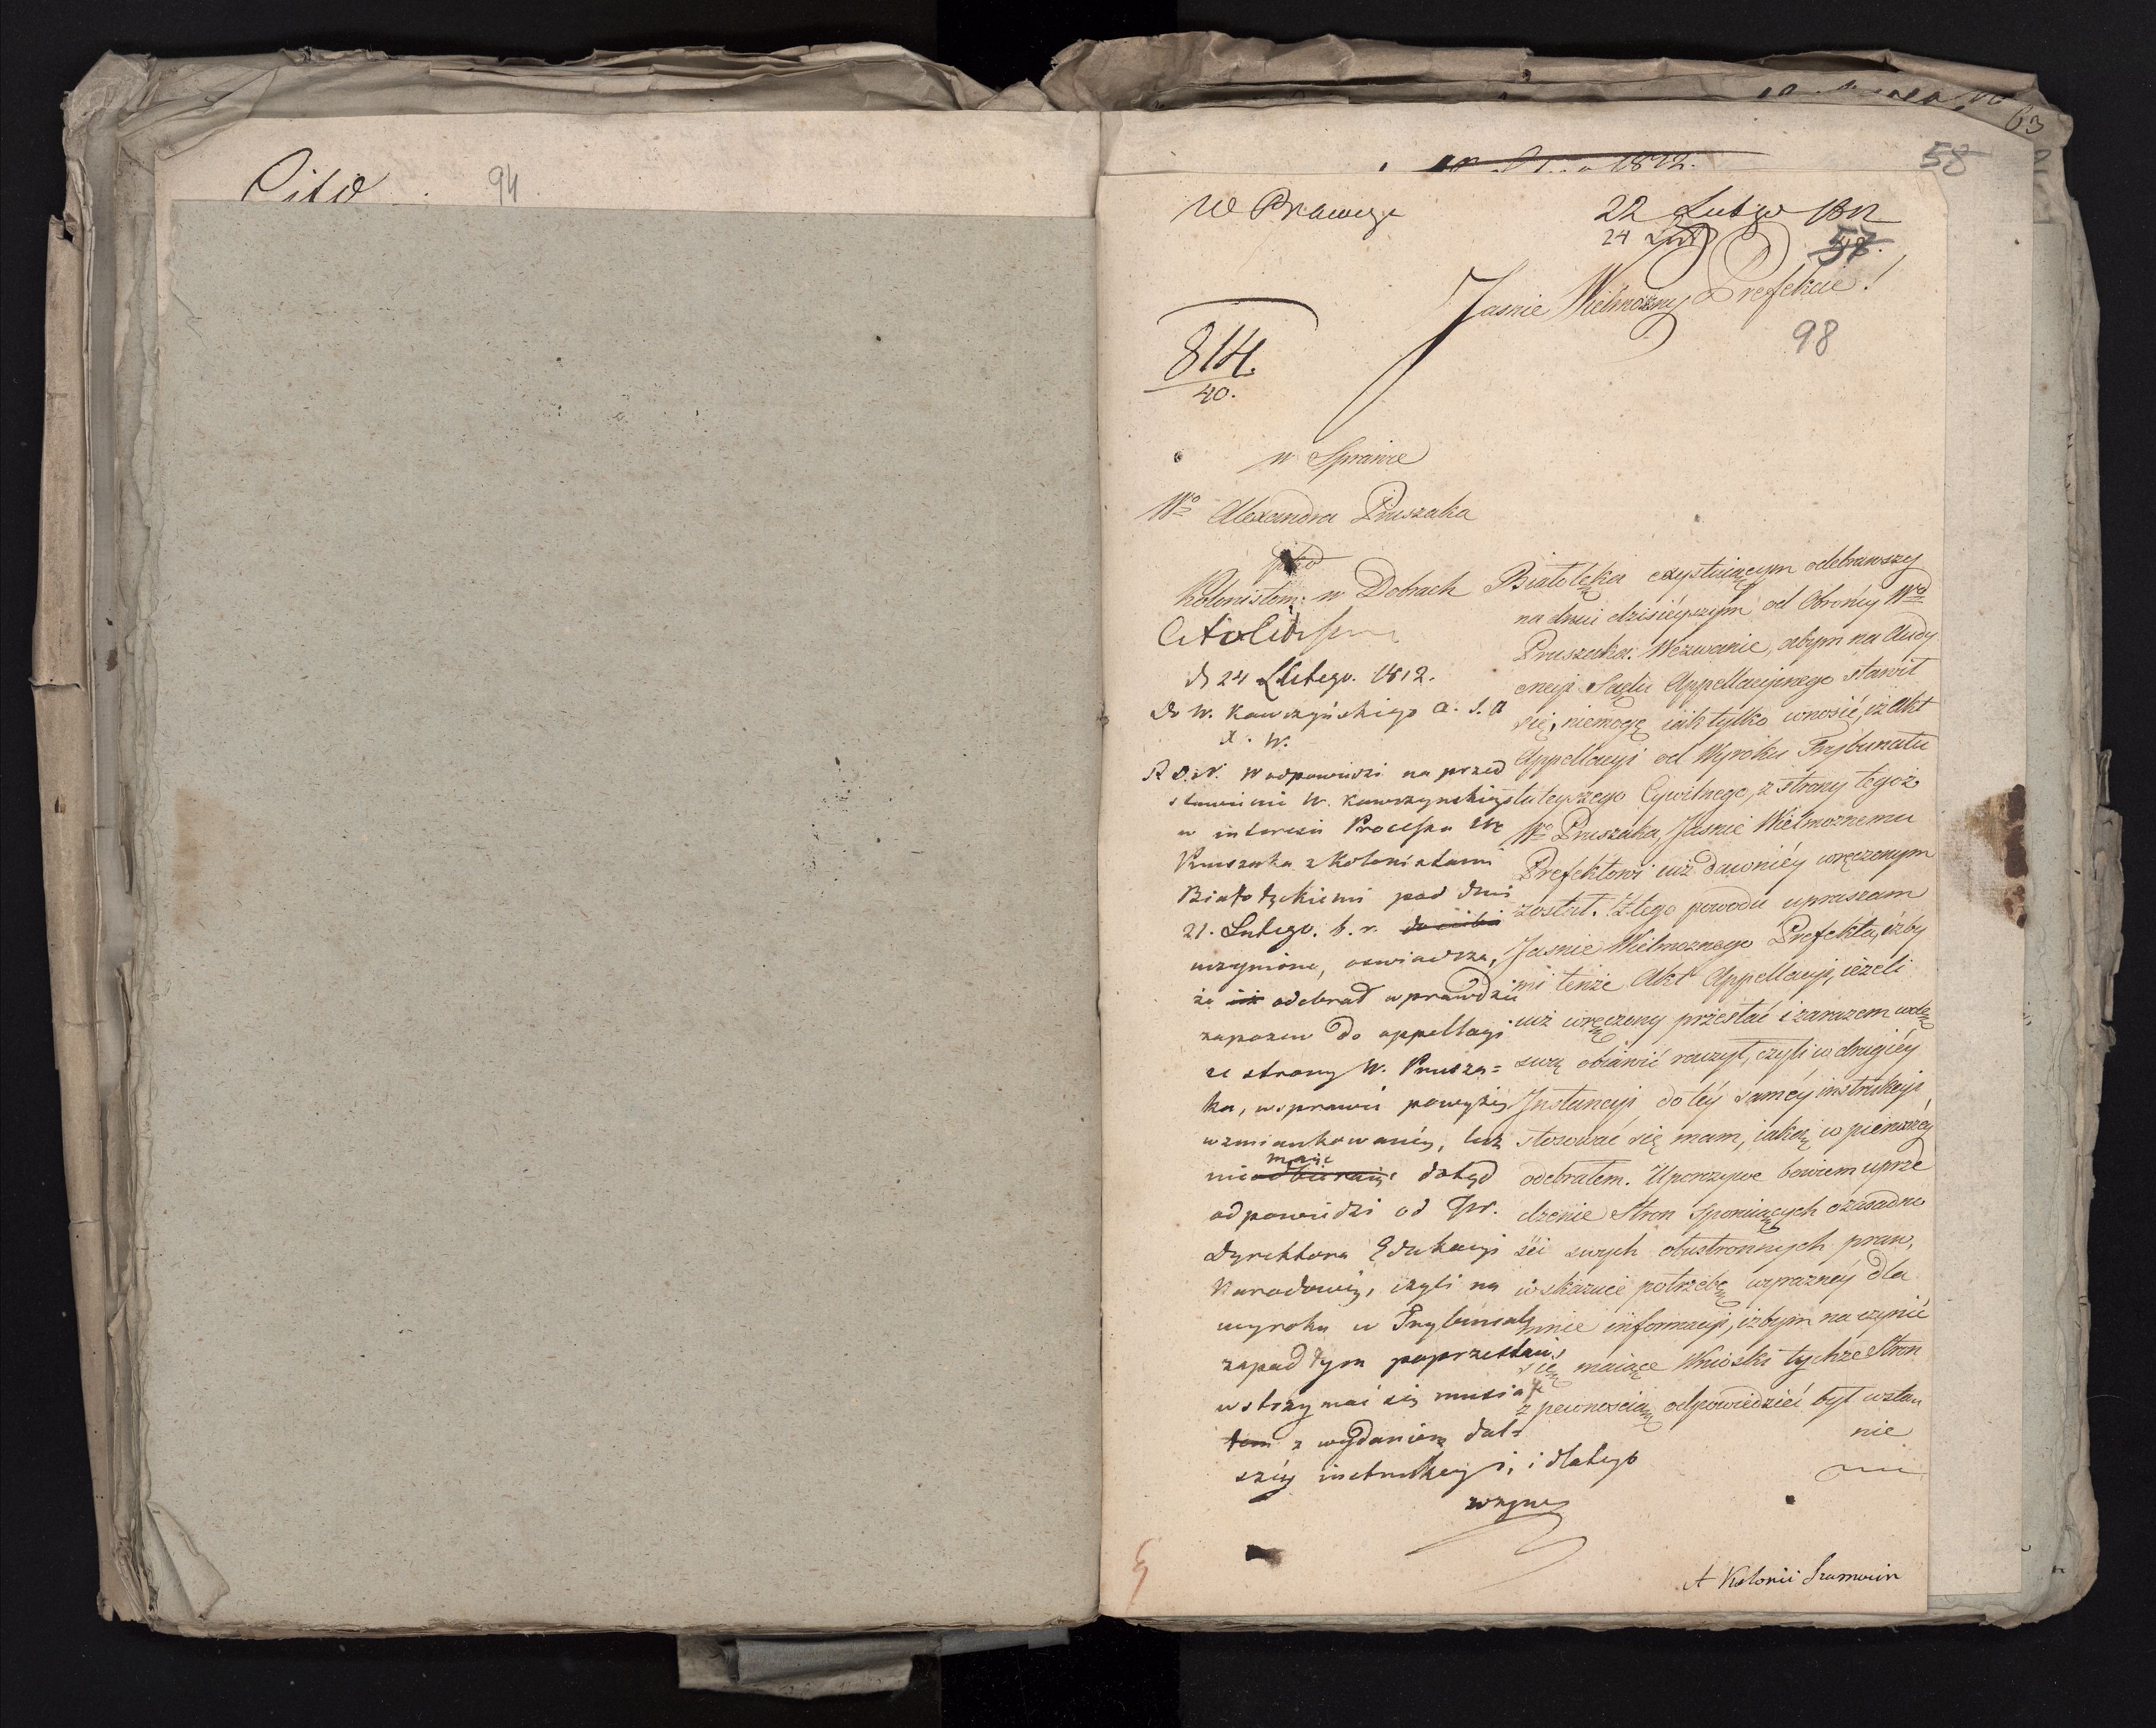 Cito. 94.
63
1812.
58
W Praweze
22 Lutego 1812
24 Lut
57.
Jasnie Wielmozny Prefekcie!
98
814.
40.
w Sprawie
Wo Alexandra Pruszaka
Kolonistom w Dobrach Białołęka exystuiącym odebrawszy
na dniu dzisieyszym od Obrońcy Wo
Pruszaka. Wezwanie, abym na Audy
encyi Sądu Appellacyinego stawił
się, niemogę iak tylko wnosić, iż Akt
Appellacyi od Wyroku Trybunału
tuteyszego Cywilnego, z strony tegoż
Wo Pruszaka, Jasnie Wielmoznemu
Prefektowi iuż dawniéy wręczonym
został. Z tego powodu upraszam
Jasnie Wielmoznego Prefekta, iżby
mi tenże Akt Appellacyi, ieżeli
iuż wręczony przesłać i zarazem wolę
swą obiawić raczył, czyli w drugiéy
Instancyi do téy saméy instrukcyi,
stosować się mam, iakąą w pierwszéy
odebrałem. Uporczywe bowiem uprze
dzenie Stron sporuiących o zasadno
ści swych obustronnych praw,
wskazuie potrzebę wyrazney dla
mnie informacyi, iżbym na czynić
się maiące Wnioski tychże Stron
z pewnością odpowiedzieć był wstan
nie
d 24 Lutego. 1812.
Do W. Kawczyńskiego A. S. A
X. W.
P. D. W. W odpowiedzi na przed
stawienie W. Kawczyńskiego
w interesie Processu We
Pruszaka z Kolonistami
Białołęckiemi pod dniem
21. Lutego. b. r.
uczynione, oswiadcza,
że iż odebrał wprawdzie
zapozew do appellacyi
ze strony W. Prusza=
ka, w sprawie powyżey
wzmiankowaney, lecz
nie maiąc dotąd
odpowiedzi od JW.
Dyrektora Edukacyi
Narodowey, czyli na
wyroku w Trybunale
zapadłym poprzestaie,
wstrzymać się musiał
z wydaniem dal=
széy instrukcyi, i dlatego
wzywa
A Kolonii Szamocin